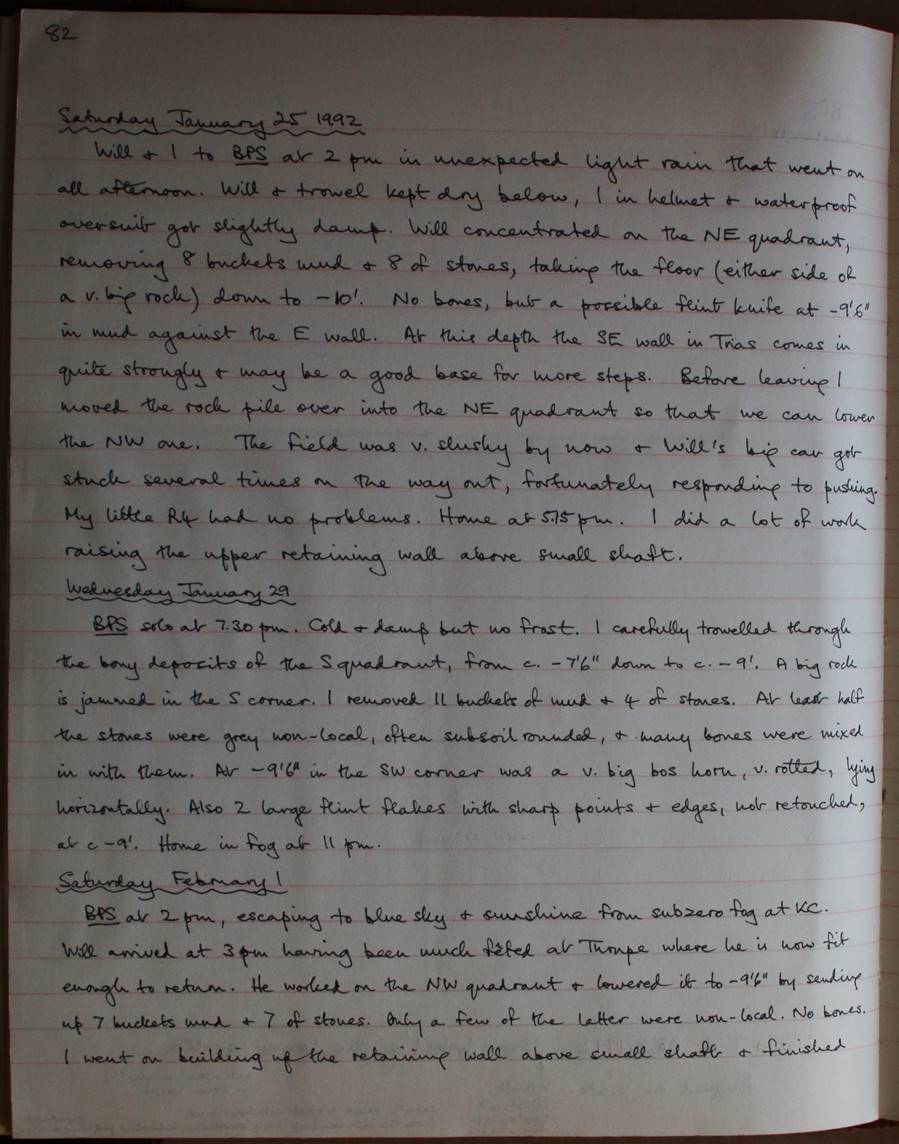 82
Saturday January 25 1992
Will & I to BPS at 2 pm in unexpected light rain that went on
all afternoon. Will & trowel kept dry below, I in helmet & waterproof
oversuit got slightly damp. Will concentrated on the NE quadrant,
removing 8 buckets mud & 8 of stones, taking the floor (either side of
a v. big rock) down to -10'. No bones, but a possible flint knife at -9'6"
in mud against the E wall. At this depth the SE wall in Trias comes in
quite strongly & may be a good base for more steps. Before leaving I
moved the rock pile over into the NE quadrant so that we can lower
the NW one. The field was v. slushy by now & Will's big car got
stuck several times on the way out, fortunately responding to pushing.
My little R4 had no problems. Home at 5.15 pm. I did a lot of work
raising the upper retaining wall above small shaft.
Wednesday January 29
BPS solo at 7.30 pm. Cold & damp but no frost. I carefully trowelled through
the bony deposits of the S quadrant, from c. -7'6" down to c. -9'. A big rock
is jammed in the S corner. I removed 11 buckets of mud & 4 of stones. At least half
the stones were grey non-local, often subsoil rounded, & many bones were mixed
in with them. At -9'6" in the SW corner was a v. big bos horn, v. rotted, lying
horizontally. Also 2 large flint flakes with sharp points & edges, not retouched,
at c -9'. Home in fog at 11 pm.
Saturday February 1
BPS at 2 pm, escaping to blue sky & sunshine from subzero fog at KC.
Will arrived at 3 pm having been much fêted at Thorpe where he is now fit
enough to return. He worked on the NW quadrant & lowered it to -9'6" by sending
up 7 buckets mud & 7 of stones. Only a few of the latter were non-local. No bones.
I went on building up the retaining wall above small shaft & finished